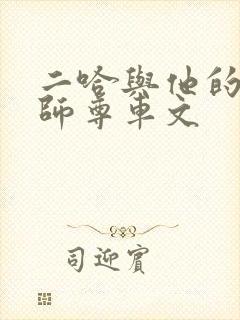 二哈與他的
師尊車文
司迎賓